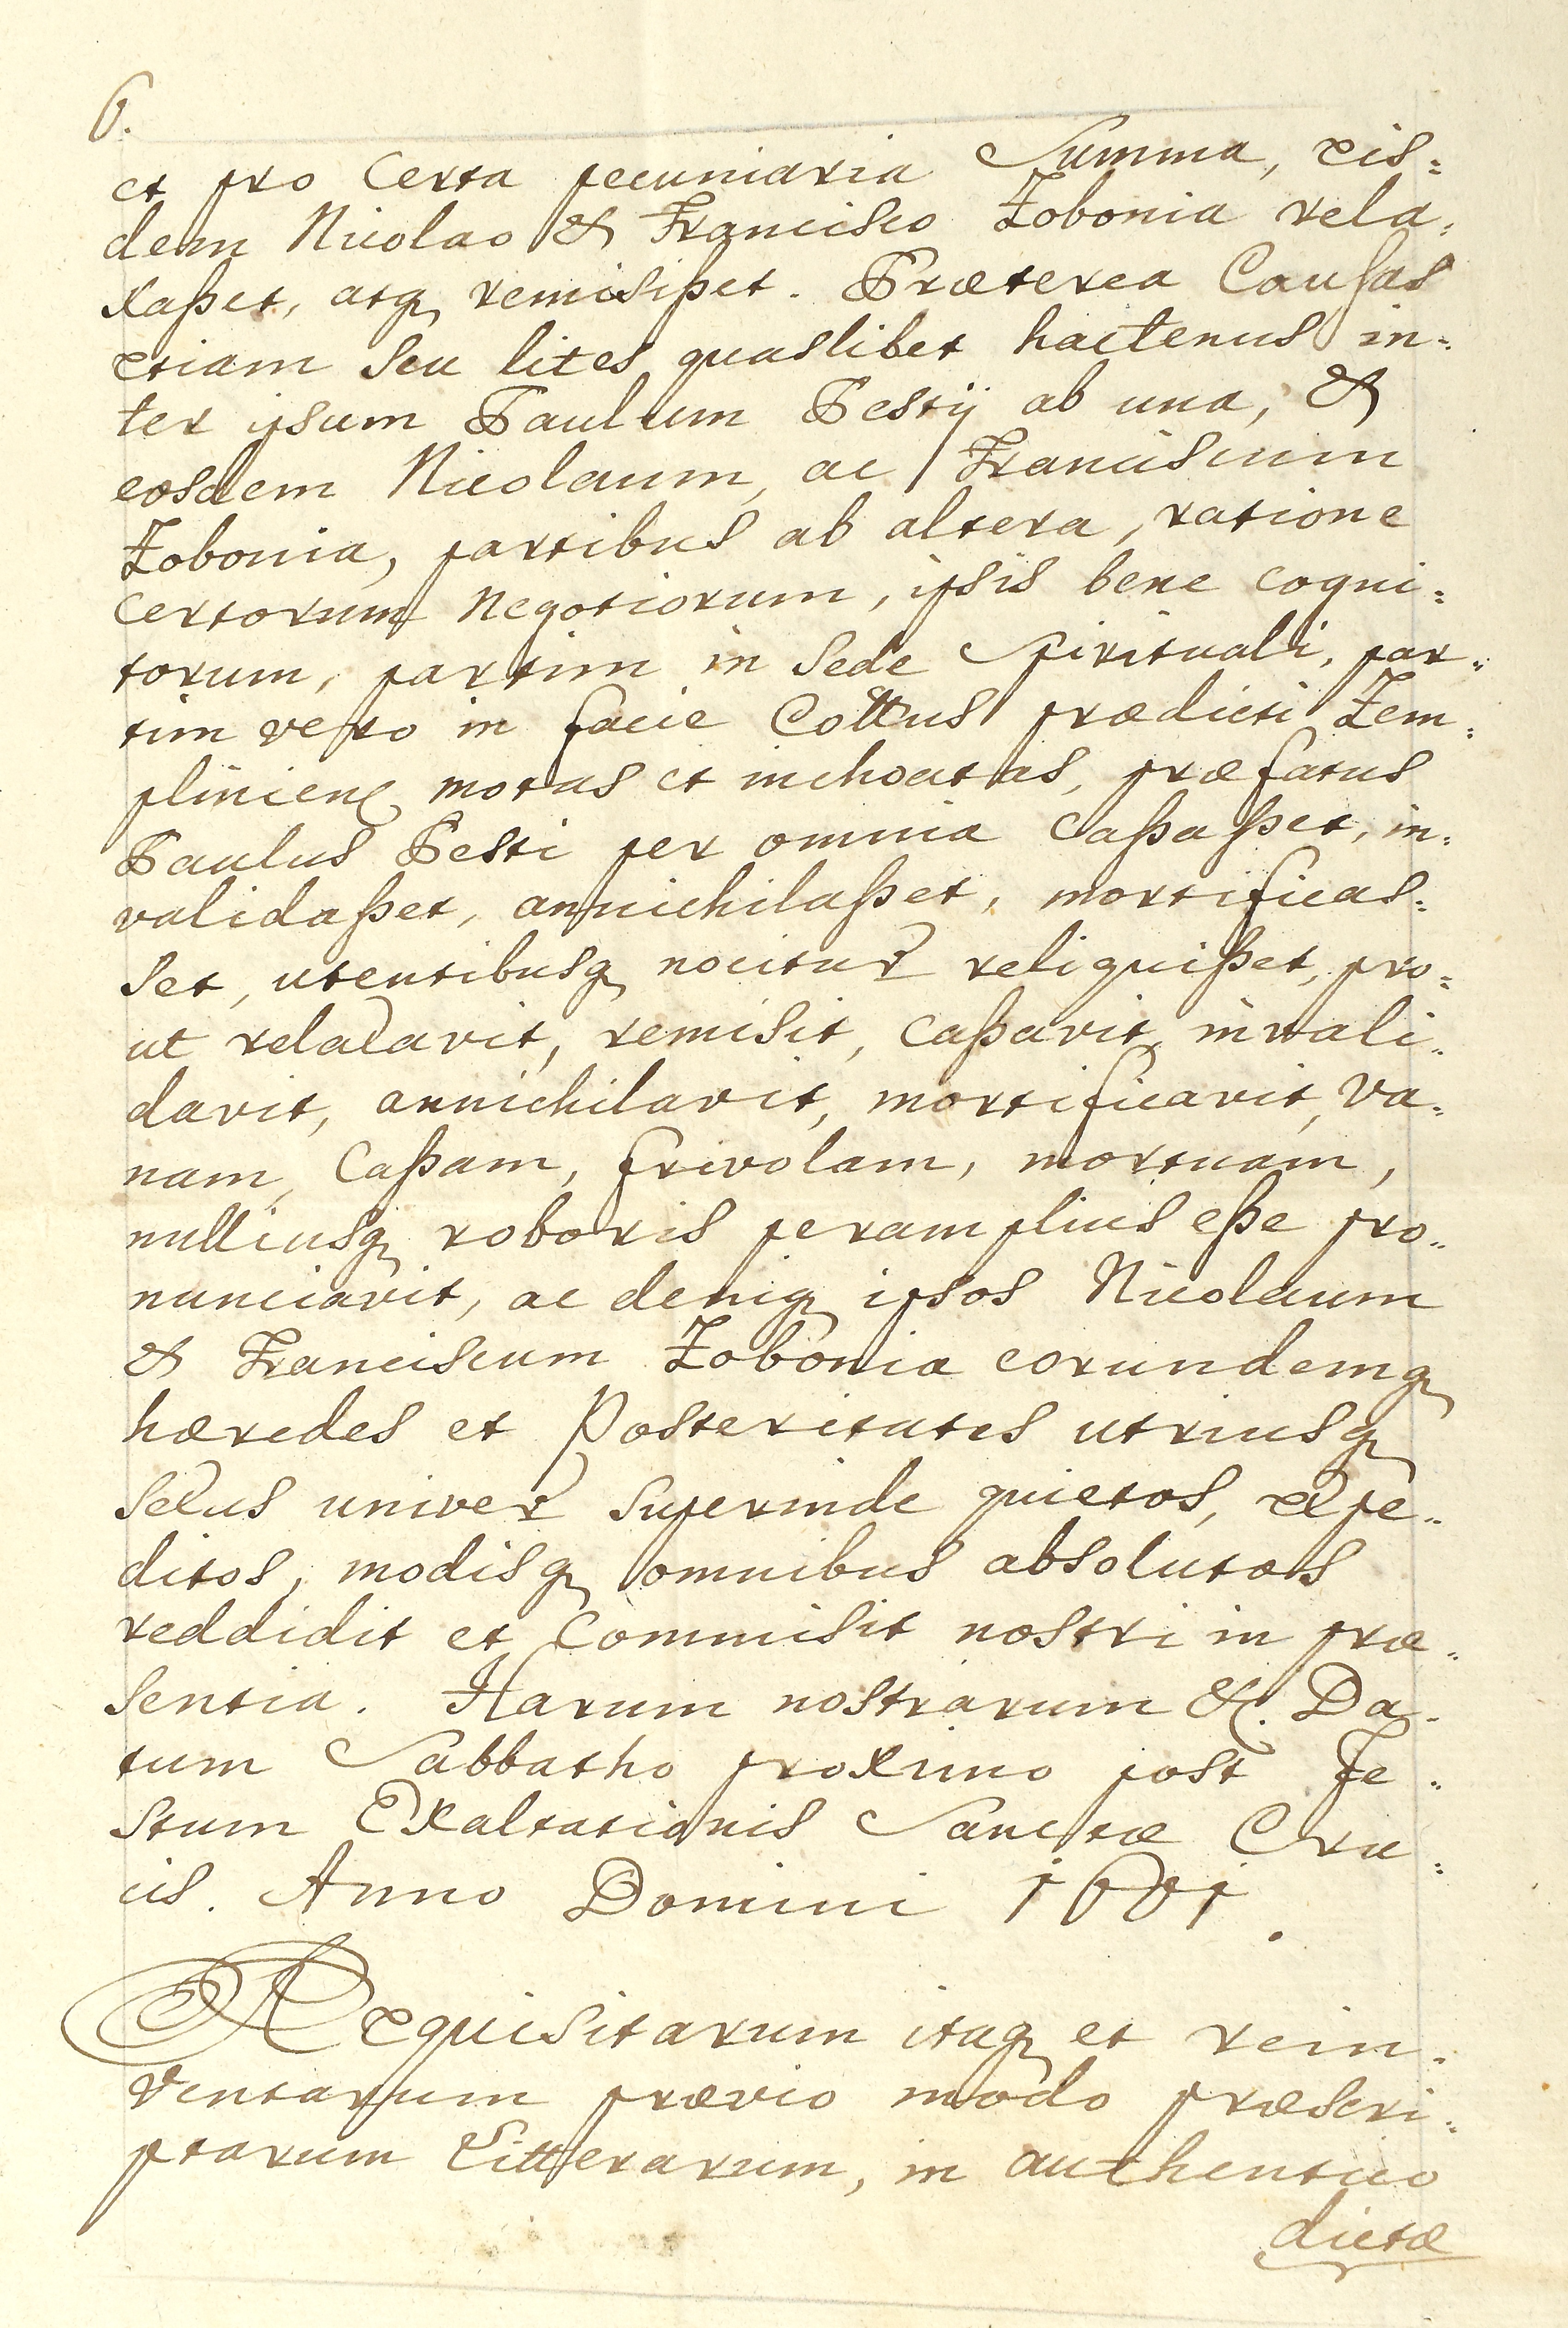 6.
et pro Certa pecuniaria Summa, eis:
dem Nicolao & Francisco Zobonia rela:
xaßet, atq remisißet. Præterea Causas
etiam Seu lites quaslibet hactenus in:
ter ipsum Paulum Pestÿ ab una, &
eosdem Nicolaum, ac Franciscum
Zobonia, partibus ab altera, ratione
Certorum Negotiorum, ipsis bene Cogni:
torum, partim in Sede Spirituali, par:
tim vero in facie Cottus prædicti Zem:
plinien motas et inchoatas, præfatus
Paulus Pesti per omnia Caßaßet, in:
validaßet, annichilaßet, mortificas:
Set, utentibusq nocitur reliquißet, pro:
ut relaxavit, remisit, Caßavit, invali:
davit, annichilavit, mortificavit, va:
nam, Caßam, frivolam, mortuam,
nulliusq roboris peramplius eße pro:
nunciavit, ac deniq ipsos Nicolaum
& Franciscum Zobonia eorundemq
hæredes et Posteritates utriusq
Sexus univer Superinde quietos, expe:
ditos, modisq omnibus absolutos
reddidit et Commisit nostri in præ:
Sentia. Harum nostrarum &c. Da:
tum Sabbatho proximo post Fe:
Stum Exaltationis Sanctæ Cru:
cis. Anno Domini 1601.
Requisitarum itaq et rein:
ventarum prævio modo præscri:
ptarum Litterarum, in authentico
dictæ